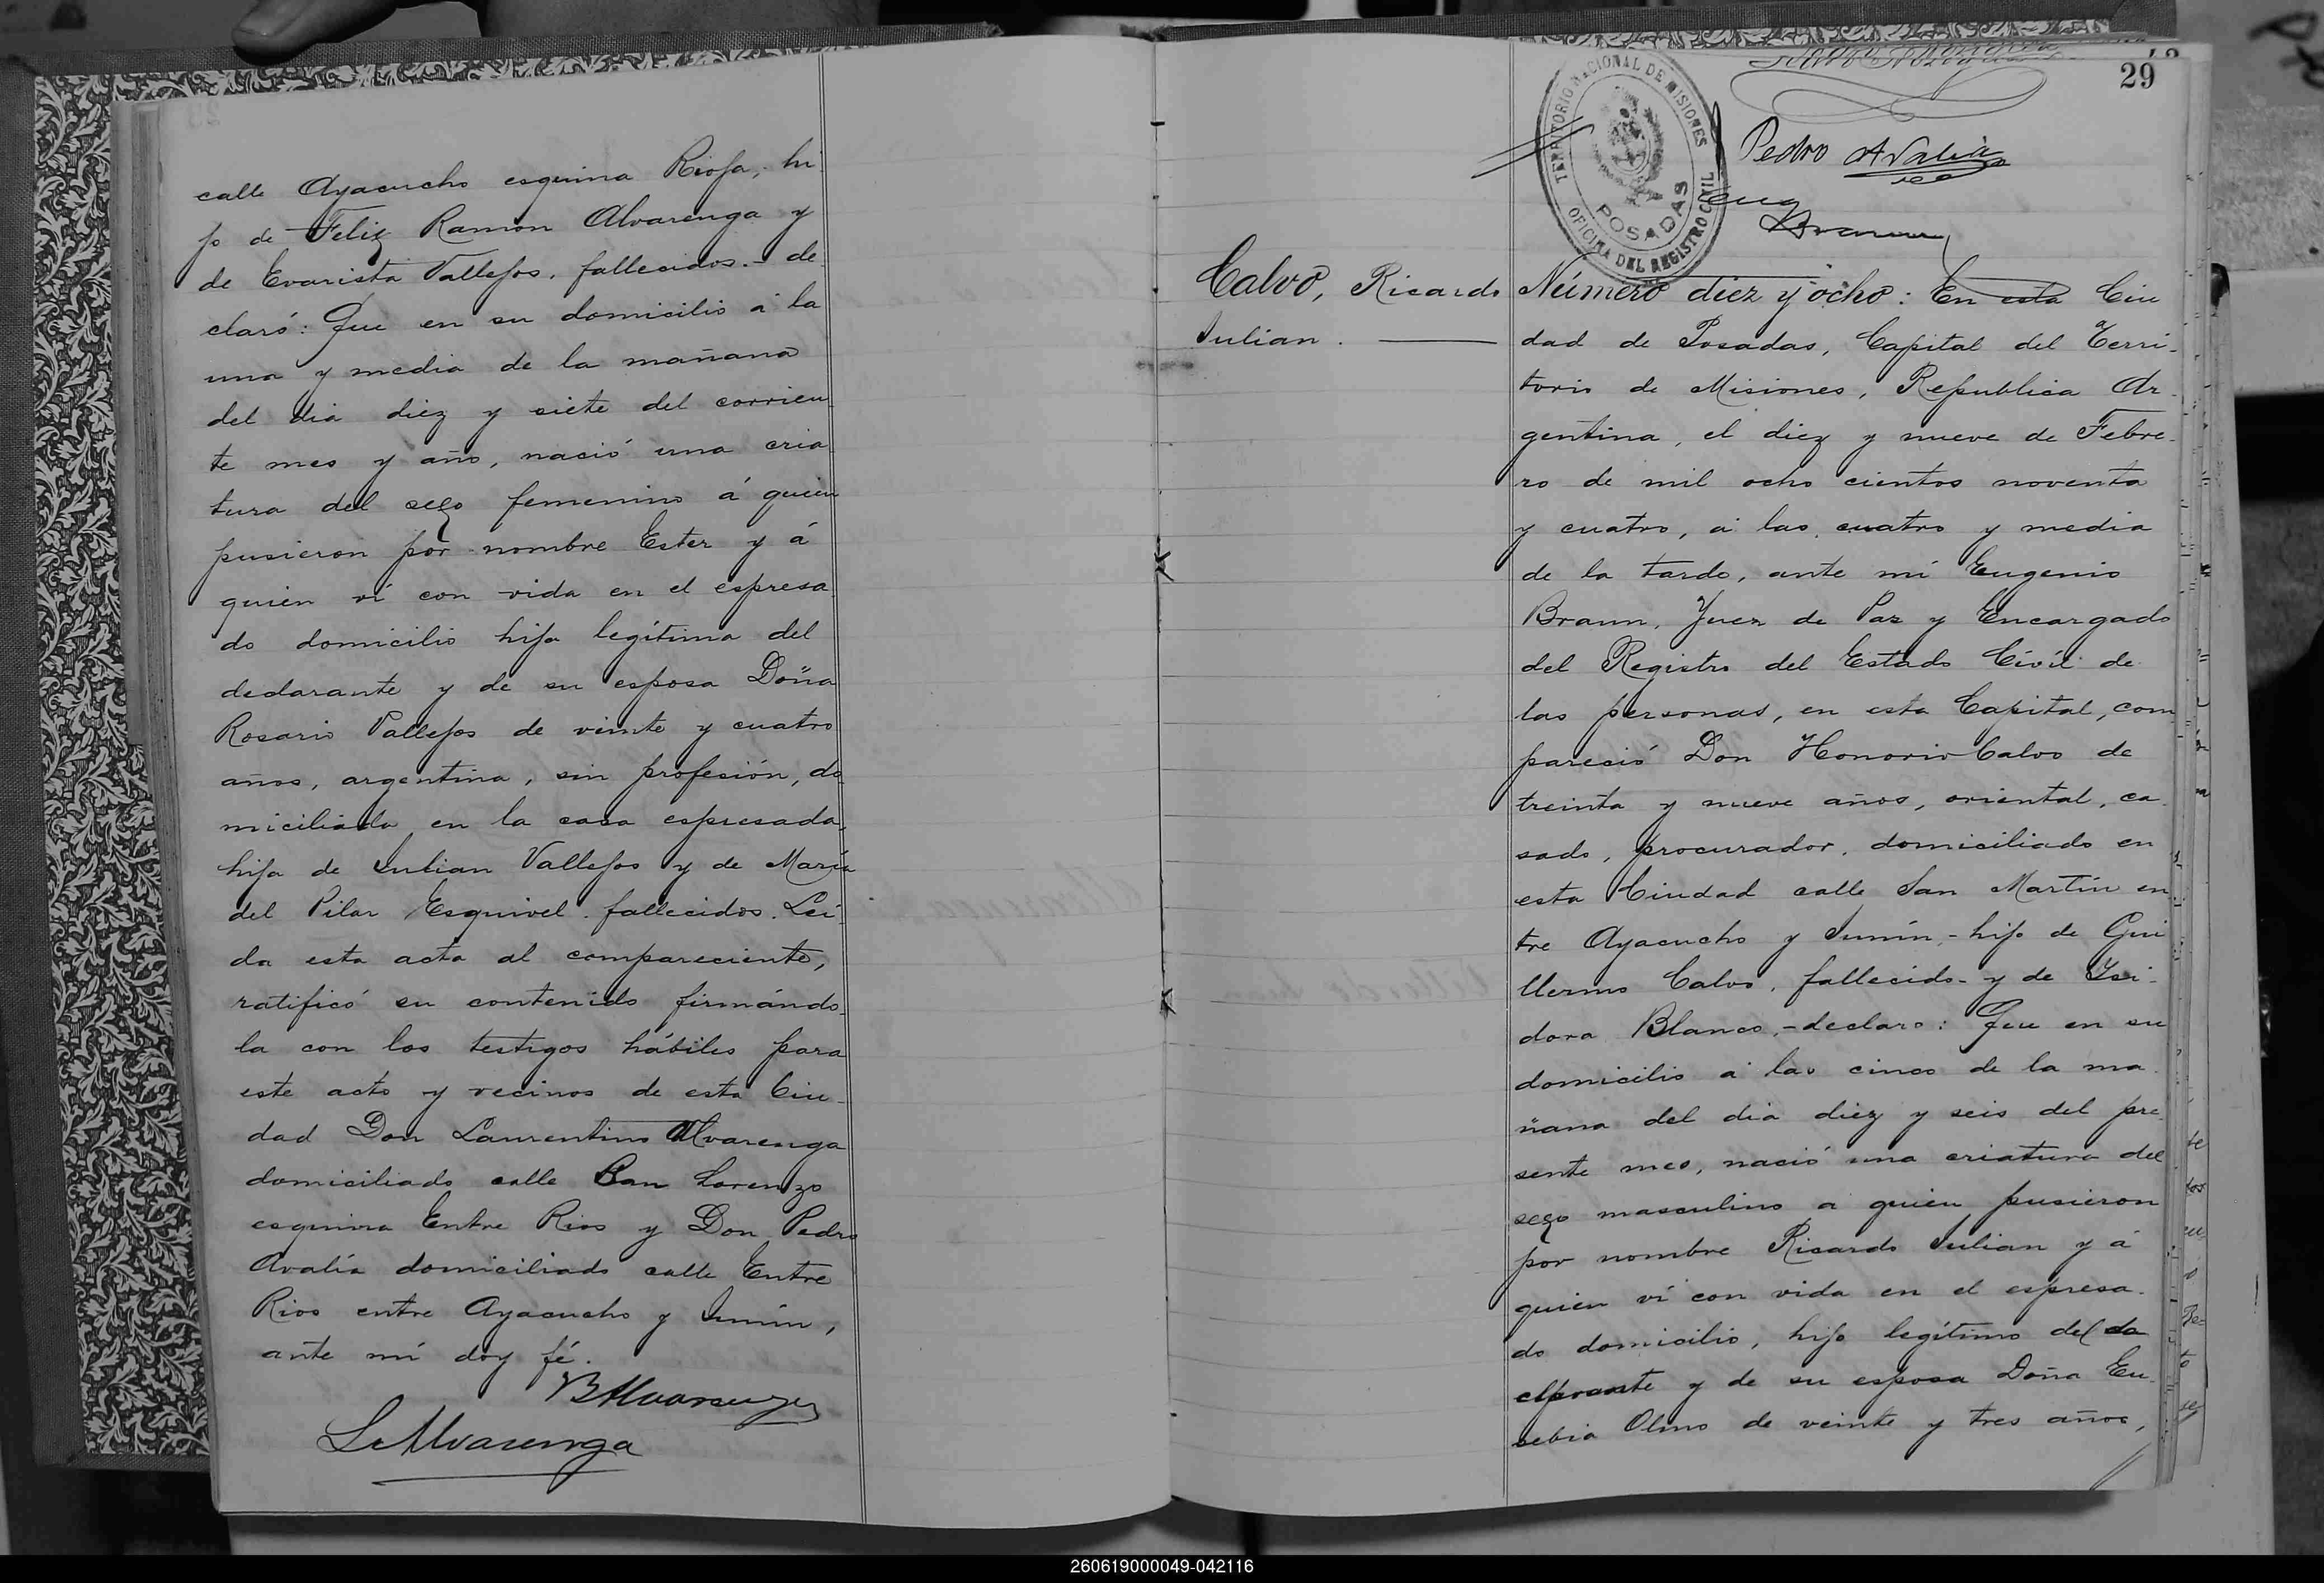 calle Ayacucho esquina Rioja, hi
jo de Feliz Ramón Alvarenga y
de Evarista Vallejos, fallecidos.- de
claró: Que en su domicilio á la
una y media de la mañana
del dia diez y siete del corrien
te mes y año, nació una cria
tura del sexo femenino á quien
pusieron por nombre Ester y á
quien ví con vida en el espresa
do domicilio hija legítima del
declarante y de su esposa Doña
Rosario Vallejos de veinte y cuatro
años, argentina, sin profesión, do
miciliada en la casa espresada,
hija de Julian Vallejos y de María
del Pilar Esquivel. fallecidos. Leí
da esta acta al compareciente,
ratificó su contenido firmándo
la con los testigos hábiles para
este acto y vecinos de esta Ciu-
dad Don Laurentino Alvarenga
domiciliado calle San Lorenzo
esquina Entre Rios y Don Pedro
Avalía domiciliado calle Entre
Rios entre Ayacucho y Junín,
ante mí doy fé.
B Alvarenga
L. Alvarenga
29
TERRITORIO NACIONAL DE MISIONES
POSADAS
OFICINA DEL REGISTRO CIVIL
Pedro Avalía
Eug Braun
Calvo, Ricardo
Julian.
Número diez y ocho: En esta Ciu
dad de Posadas, Capital del Terri-
torio de Misiones, Republica Ar-
gentina, el diez y nueve de Febre-
ro de mil ocho cientos noventa
y cuatro, á las cuatro y media
de la tarde, ante mí Eugenio
Braun, Juez de Paz y Encargado
del Registro del Estado Civíl de
las personas, en esta Capital, com
pareció Don Honorio Calvo de
treinta y nueve años, oriental, ca
sado, procurador, domiciliado en
esta Ciudad calle San Martín en
tre Ayacucho y Junín,- hijo de Gui
llermo Calvo, fallecido- y de Isi-
dora Blanco,- declaro: Que en su
domicilio á las cinco de la ma
ñana del dia diez y seis del pre
sente mes, nació una criatura del
sexo masculino a quien pusieron
por nombre Ricardo Julian y á
quien ví con vida en el espresa-
do domicilio, hijo legítimo del de
clarante y de su esposa Doña Eu
sebia Olmo de veinte y tres años,
260619000049-042116